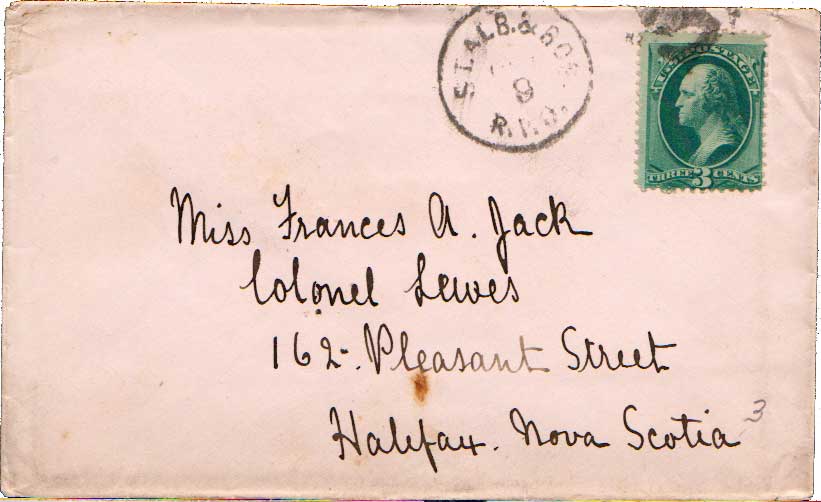 ST.ALB. & BOS.
9
R.P.O.
U.S. POSTAGE
THREE 3 CENTS
Miss Frances A. Jack
Colonel Lewes
162. Pleasant Street
Halifax. Nova Scotia
3